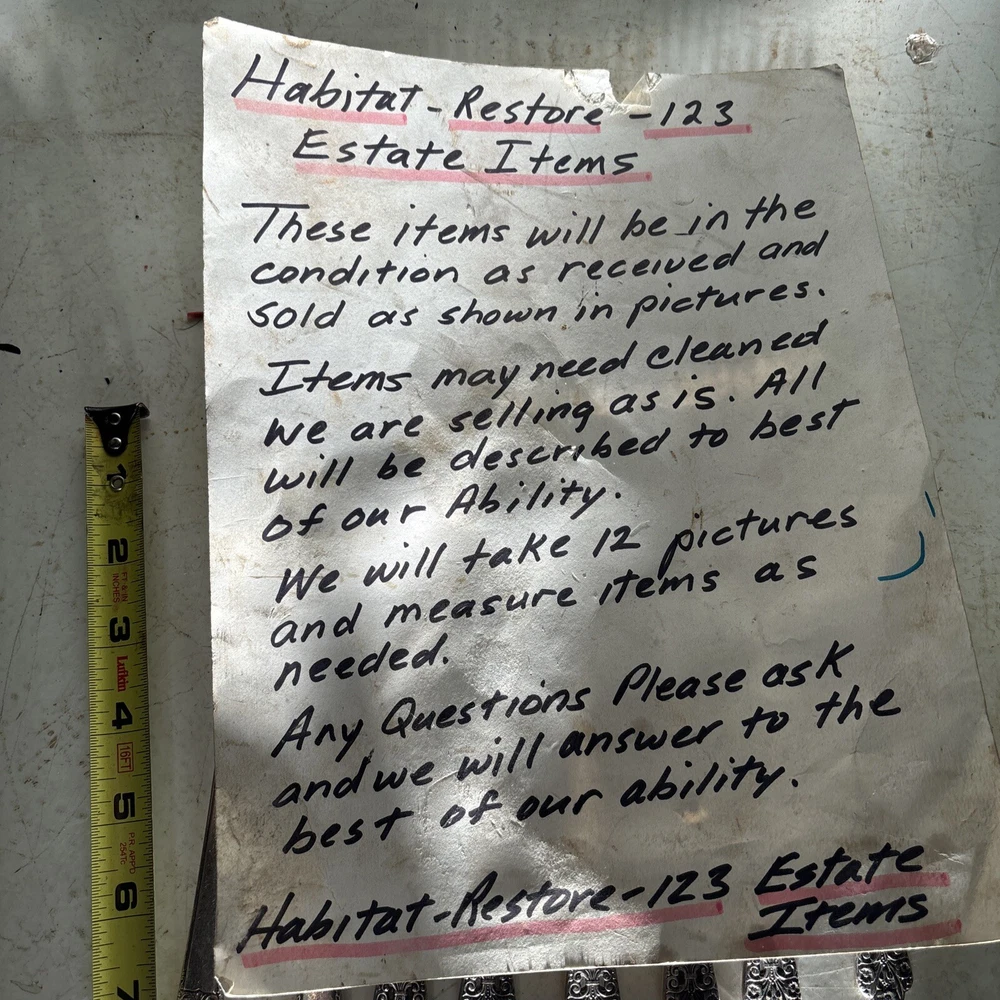 Habitat-Restore-123
Estate Items
These items will be in the
condition as received and
sold as shown in pictures.
Items may need cleaned
we are selling as is. All
will be described to best
of our Ability.
We will take 12 pictures
and measure items as
needed.
Any Questions Please ask
and we will answer to the
best of our ability.
Habitat-Restore-123 Estate
Items
1
2
FT & IN
INCHES
3
Lufkin
4
16FT
5
6
7